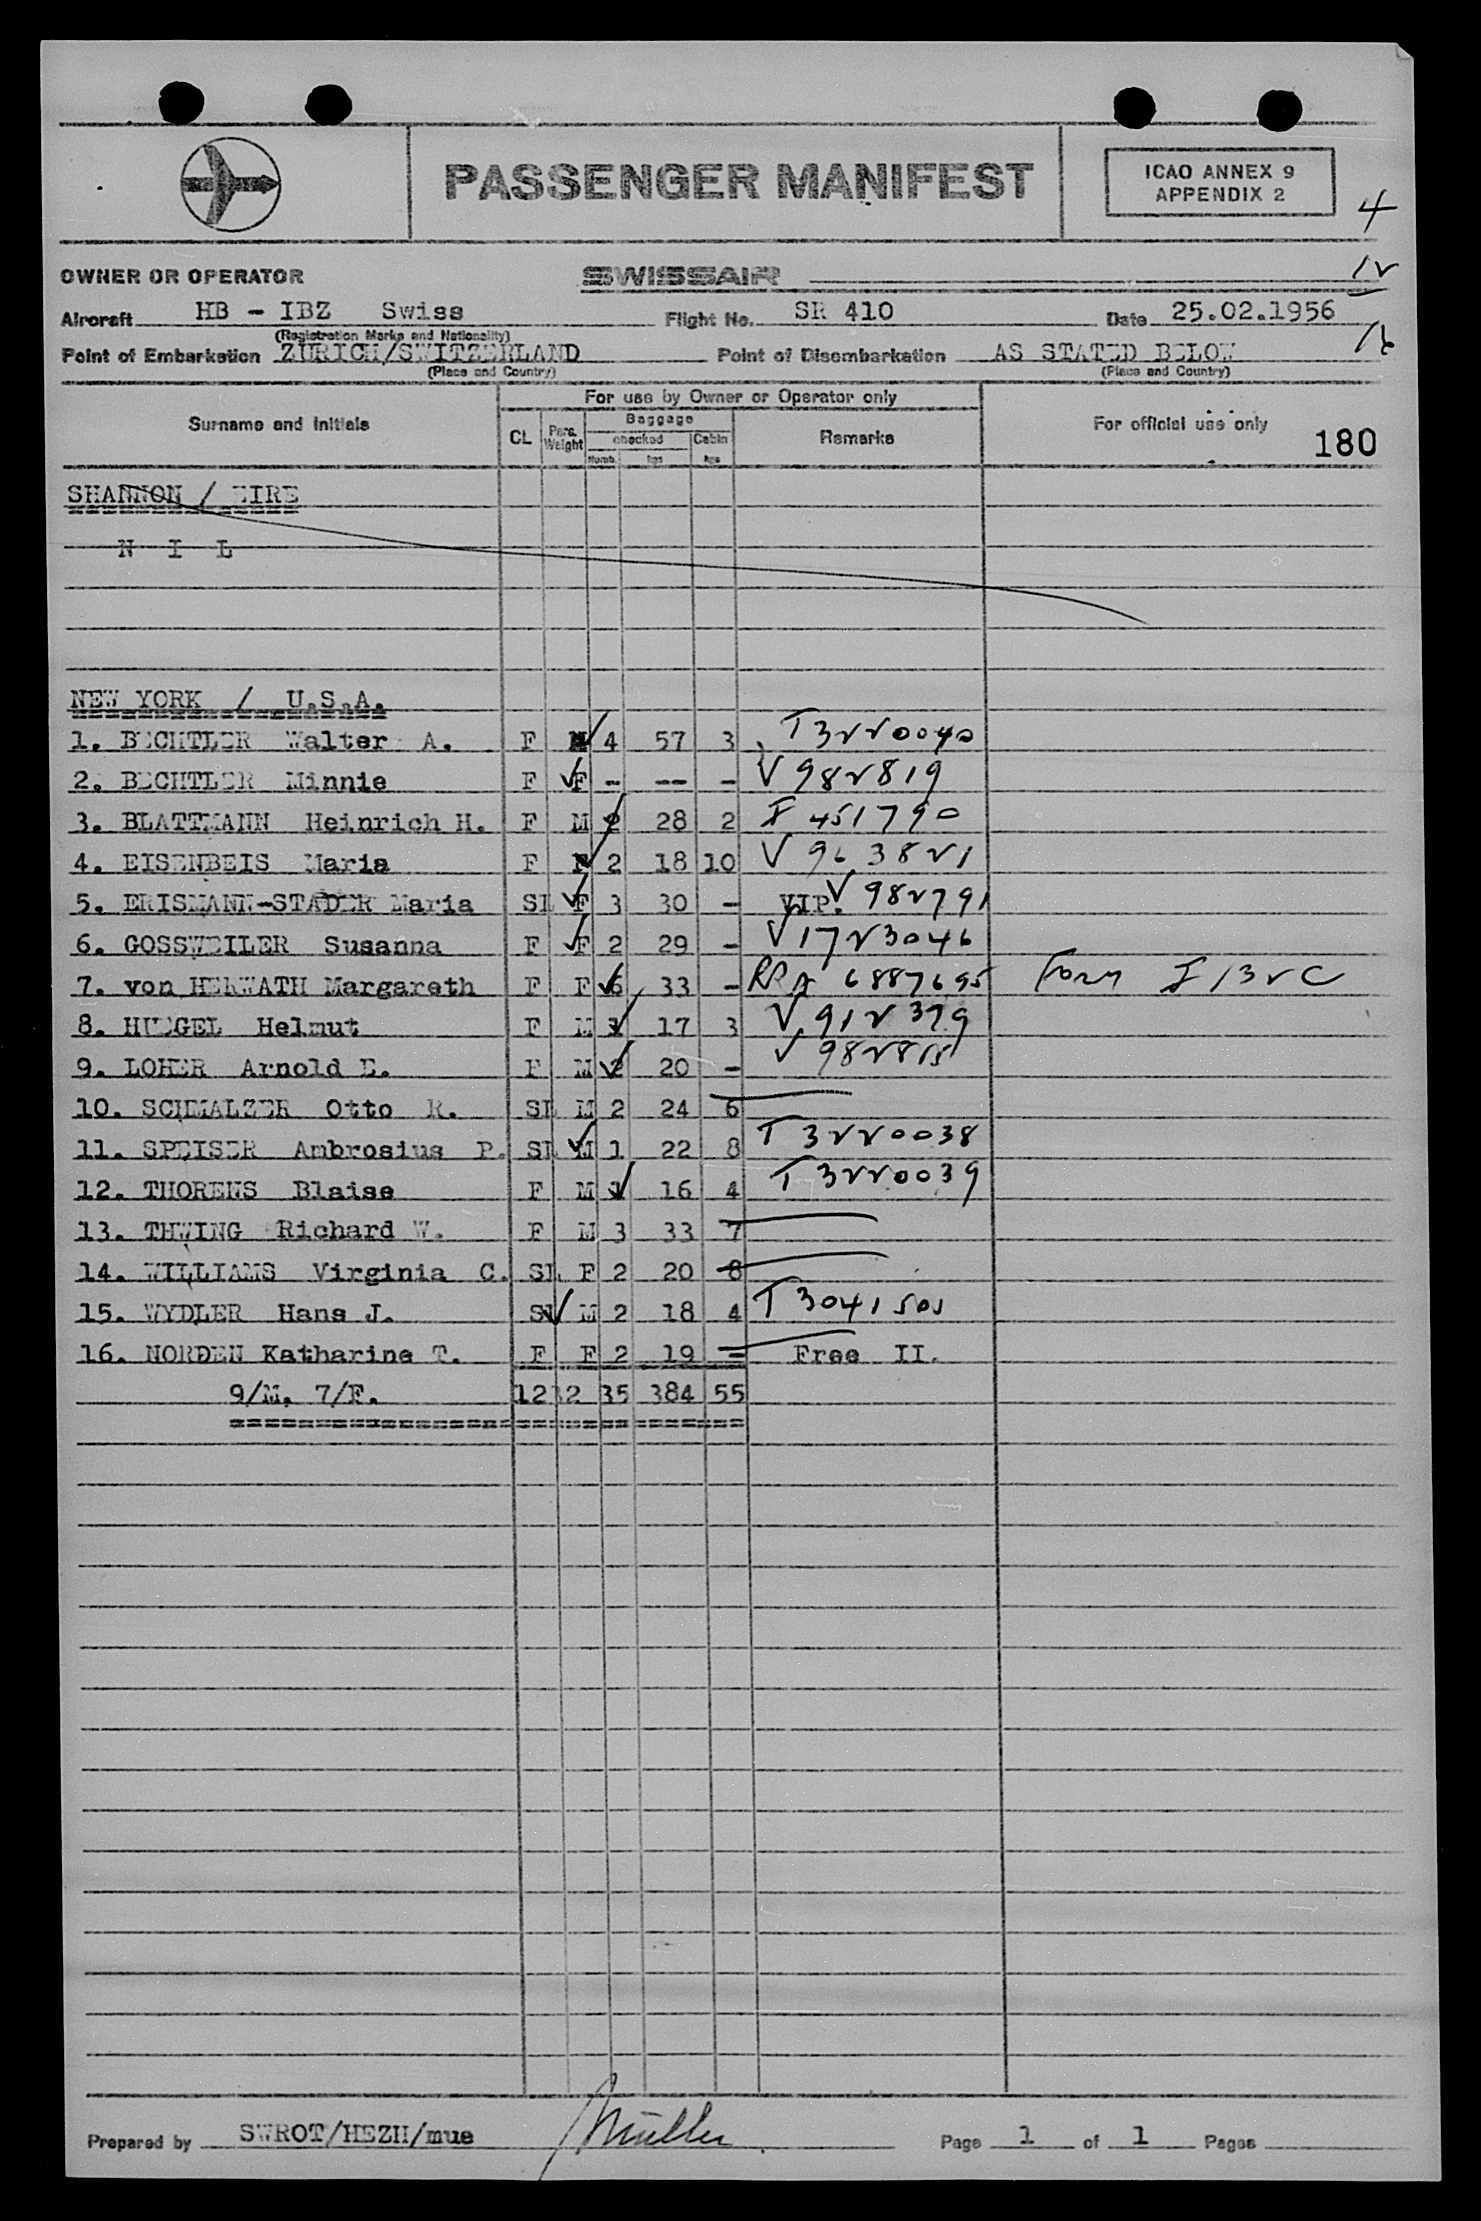 PASSENGER MANIFEST
ICAO ANNEX 9
APPENDIX 2
4
OWNER OR OPERATOR SWISSAIR
12
Aircraft HB - IBZ Swiss Flight No. SR 410 Date 25.02.1956
(Registration Marks and Nationality)
Point of Embarkation ZURICH/SWITZERLAND Point of Disembarkation AS STATED BELOW
16
(Place and Country) (Place and Country)
For use by Owner or Operator only
Surname and Initials CL Pers. Weight Baggage checked Cabin Remarks For official use only
Numb. kgs kgs
180
SHANNON / EIRE
N I L
NEW YORK / U.S.A.
1. BECHTLER Walter A. F M 4 57 3 T 3220040
2. BECHTLER Minnie F F - -- - V 982819
3. BLATTMANN Heinrich H. F M 2 28 2 I 451790
4. EISENBEIS Maria F F 2 18 10 V 963821
5. ERISMANN-STADER Maria SL F 3 30 - VIP. V 982791
6. GOSSWEILER Susanna F F 2 29 - V 1723046
7. von HERWATH Margareth F F 6 33 - RPA 6887695 Form I 132 C
8. HUEGEL Helmut F M 1 17 3 V 912379
9. LOHER Arnold E. F M 2 20 - V 982818
10. SCHMALZER Otto R. SL M 2 24 6
11. SPEISER Ambrosius P. SL M 1 22 8 T 3220038
12. THORENS Blaise F M 1 16 4 T 3220039
13. THWING Richard W. F M 3 33 7
14. WILLIAMS Virginia C. SL F 2 20 8
15. WYDLER Hans J. SL M 2 18 4 T 3041505
16. NORDEN Katharine T. F F 2 19 - Free II.
9/M. 7/F. 1232 35 384 55
Prepared by SWROT/HEZH/mue Müller Page 1 of 1 Pages